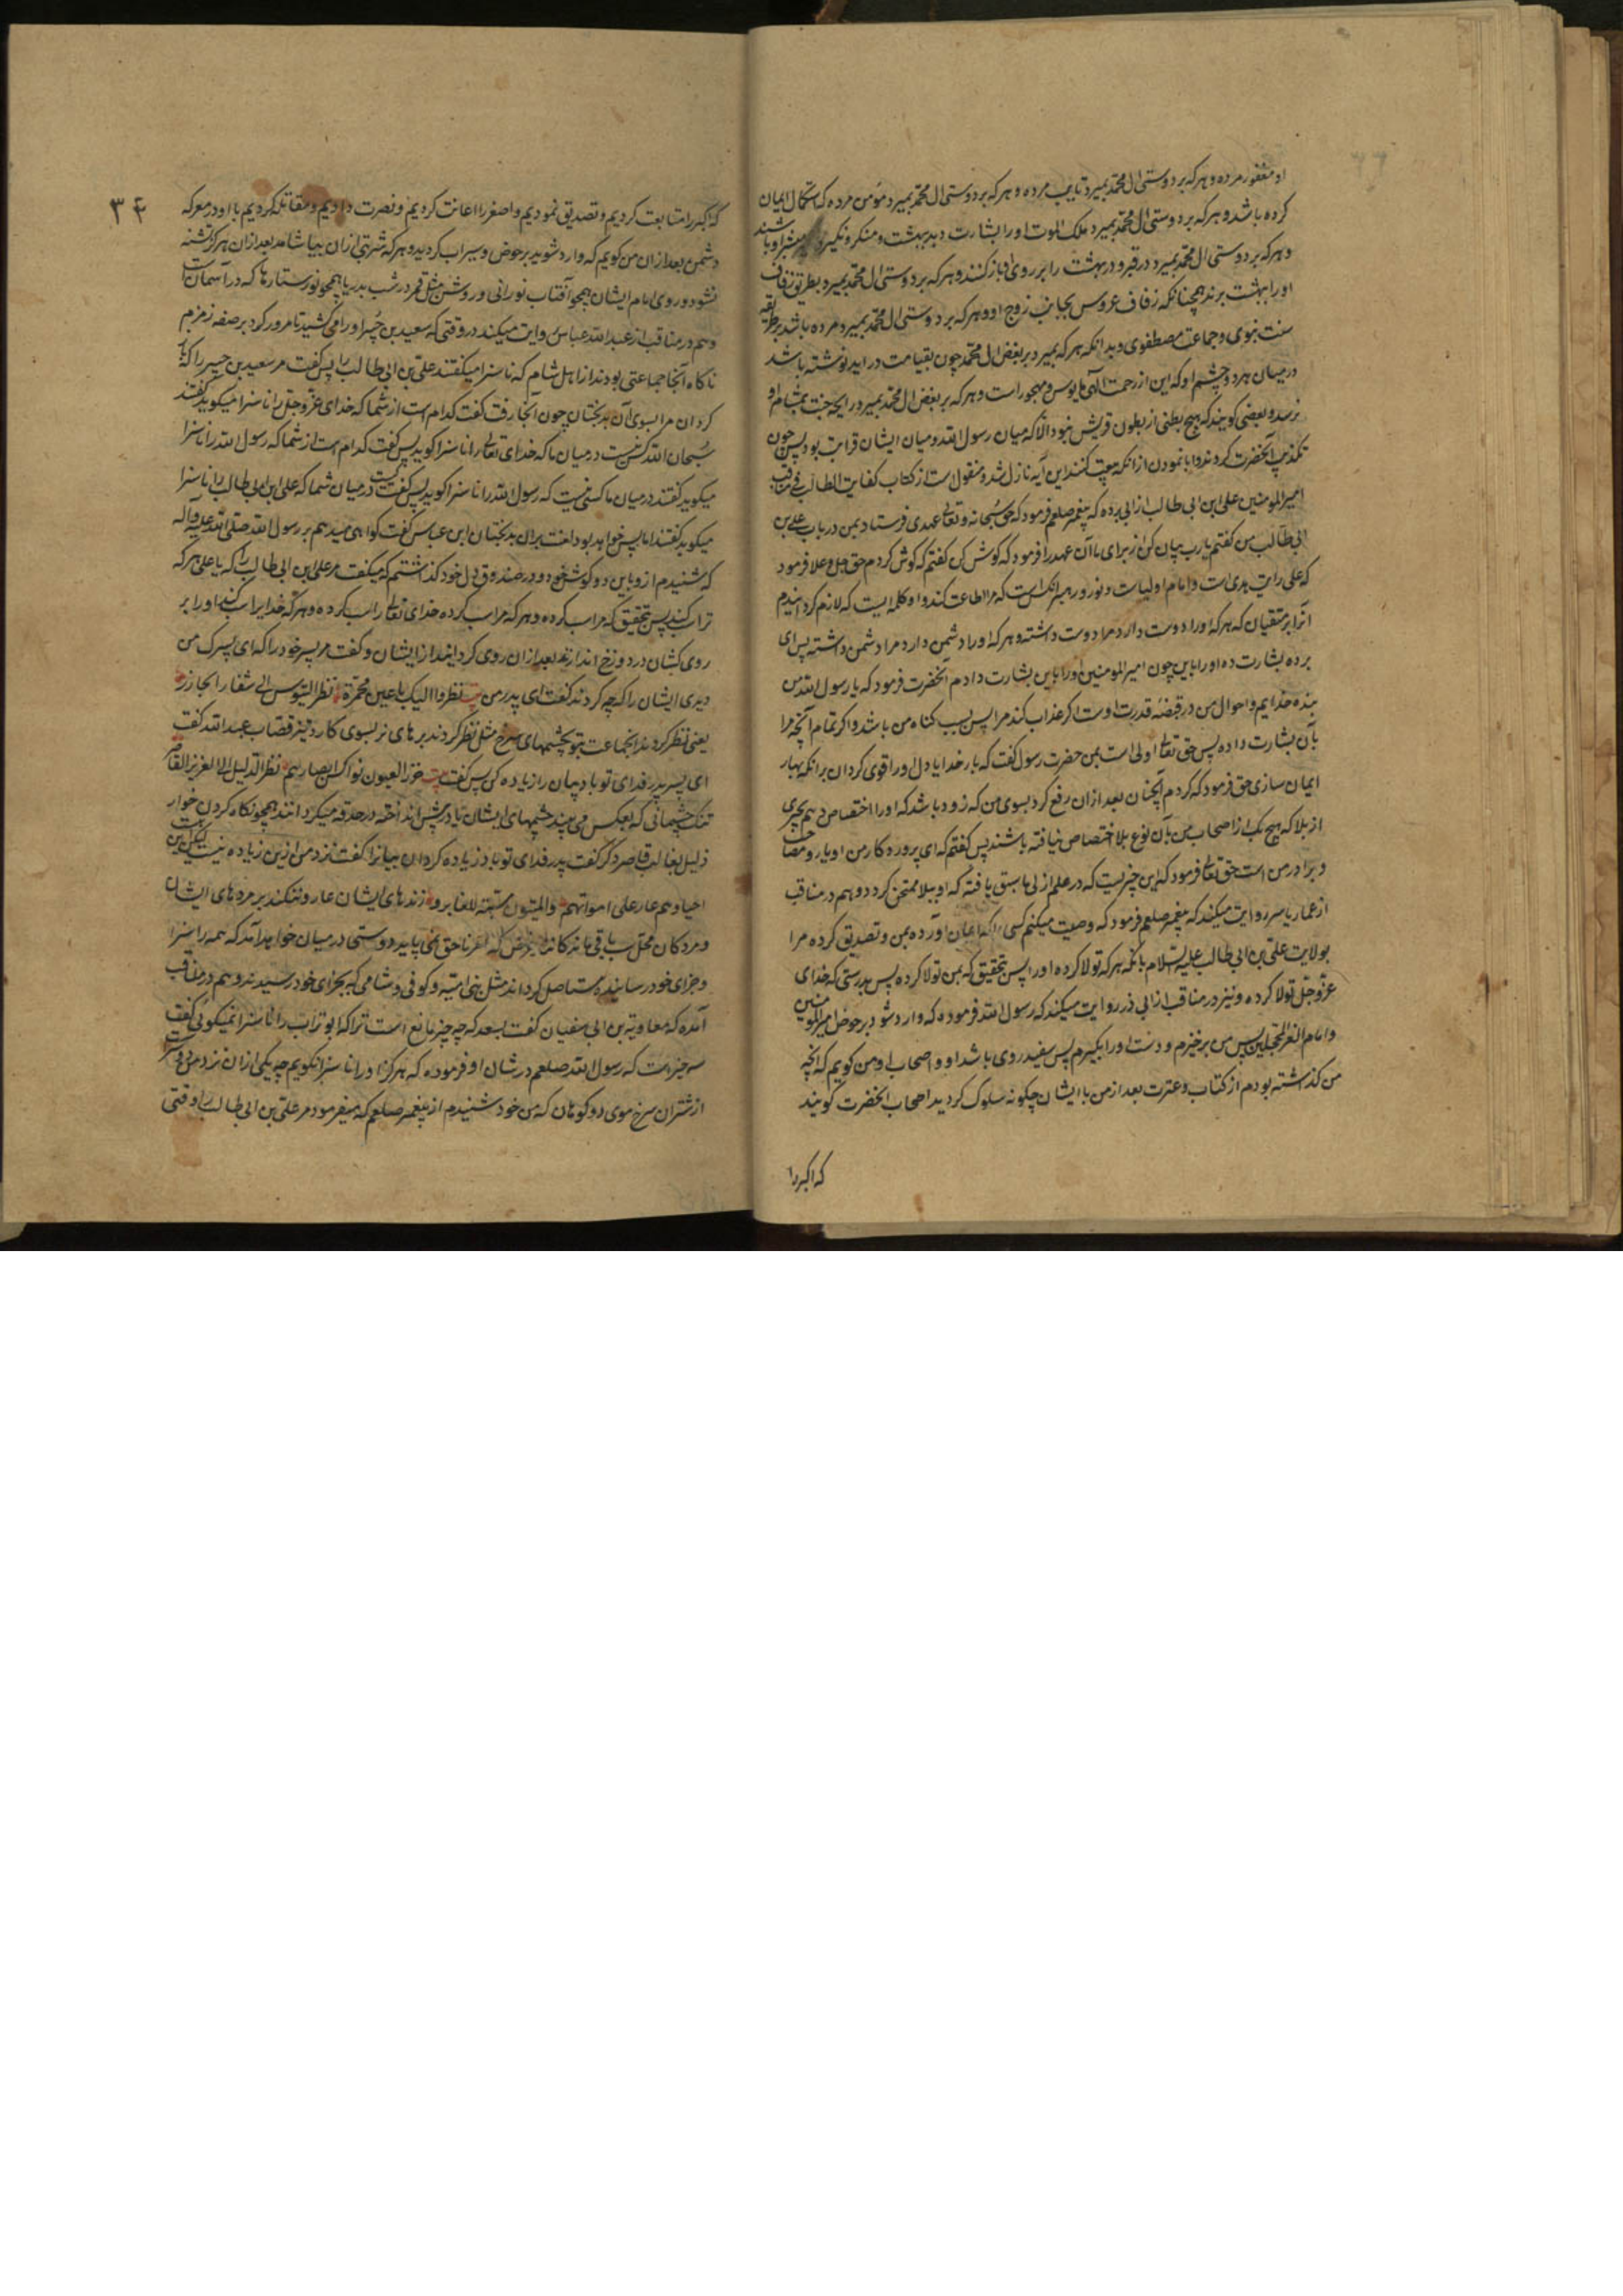 او مغفور مرده و هر که بر دوستی ال محمد بمیرد تایب مرده و هر که بر دوستی ال محمد بمیرد مؤمن مرده که استکمال ایمان
کرده باشد و هر که بر دوستی ال محمد بمیرد ملک الموت اورا بشارت دهد ببهشت و منکر و نکیر مبشر او باشند
و هر که بر دوستی ال محمد بمیرد در قبر او در بهشت را بر روی او باز کنند و هر که بر دوستی ال محمد بمیرد بطریق زفاف
اورا ببهشت برند همچنانکه زفاف عروس بجانب زوج او و هر که بر دوستی ال محمد بمیرد مرده باشد بر طریقه
سنت نبوی و جماعت مصطفوی و بدانکه هر که بمیرد بر بغض ال محمد چون بقیامت در اید نوشته باشد
در میان هر دو چشم او که این از رحمت الهی مایوس و مهجور است و هر که بر بغض ال محمد بمیرد رایحه جنت بمشام او
نرسد و بعضی کویند که هیچ بطنی از بطون قریش نبود الا که میان رسول الله و میان ایشان قرابت بود پس چون
تکذیب آنحضرت کردند و ابا نمودن از انکه بیعت کنند این آیه نازل شد و منقول است از کتاب کفایت الطالب فی مناقب
امیر المومنین علی ابن ابی طالب از ابی برده که پیغمبر صلعم فرمود که حق سبحانه و تعالی عهدی فرستاد بمن در باب علی بن
ابی طالب من کفتم یا رب بیان کن از برای ما آن عهد را فرمود که کوش کن کفتم که کوش کردم حق جل و علا فرمود
که علی رایت هدی است و امام اولیاست و نور و رهبر انکس است که مرا اطاعت کند و او کلمه ایست که لازم کردانیدم
آنرا بر متقیان که هر که اورا دوست دارد مرا دوست داشته و هر که اورا دشمن دارد مرا دشمن داشته پس ای
برده بشارت ده اورا باین چون امیر المومنین اورا باین بشارت دادم آنحضرت فرمود که یا رسول الله من
بنده خدایم و احوال من در قبضهٔ قدرت اوست اکر عذاب کند مرا پس بسبب کناه من باشد و اکر تمام آنچه مرا
بآن بشارت داده پس حق تعالی اولی است بمن حضرت رسول کفت که بار خدایا دل اورا قوی کردان بر انکه بهار
ایمان سازی حق فرمود که کردم آنچنان بعد از ان رفع کرد بسوی من که زود باشد که اورا اختصاص دهیم بچیزی
از بلا که هیچ یک از اصحاب من بآن نوع بلا اختصاص نیافته باشند پس کفتم که ای پروردکار من او یار و مصاحب
و برادر من است حق تعالی فرمود که این چیزیست که در علم ازلی ما سبق یافته که او ببلا ممتحن کردد و هم در مناقب
از عمار یاسر روایت میکند که پیغمبر صلعم فرمود که وصیت میکنم کسی را که ایمان آورده بمن و تصدیق کرده مرا
بولایت علی بن ابی طالب علیه السلام بانکه هر که تولا کرده اورا پس بتحقیق که بمن تولا کرده پس بدرستی که خدای
عز و جل تولا کرده و نیز در مناقب از ابی ذر روایت میکند که رسول الله فرموده که وارد شود بر حوض امیر المومنین
و امام الغر المحجلین پس من بر خیزم و دست اورا بکیرم پس سفید روی باشد او و اصحاب او من کویم که آنچه
من کذاشته بودم از کتاب و عترت بعد از من با ایشان چکونه سلوک کردید اصحاب آنحضرت کویند
که اکبر را
۳۴
که اکبر را متابعت کردیم و تصدیق نمودیم و اصغر را اعانت کردیم و نصرت دادیم و مقاتله کردیم با او در معرکه
دشمن بعد از ان من کویم که وارد شوید بر حوض و سیراب کردید و هر که شربتی از ان بیاشامد بعد از ان هرکز تشنه
نشود و روی امام ایشان همچو آفتاب نورانی و روشن مثل قمر در شب بدر یا همچو نور ستارها که در آسمان است
و هم در مناقب از عبد الله عباس روایت میکند در وقتی که سعید بن جبیر اورا می کشید تا مرور کرد بر صفه زمزم
ناکاه آنجا جماعتی بودند از اهل شام که ناسزا میکفتند علی بن ابی طالب را پس کفت مر سعید بن جبیر را که باز
کردان مرا بسوی آن بدبختان چون آنجا رفت کفت کدام است از شما که خدای عز و جل را ناسزا میکوید کفتند
سبحان الله کس نیست در میان ما که خدای تعالی را ناسزا کوید پس کفت کدام است از شما که رسول الله را ناسزا
میکوید کفتند در میان ما کسی نیست که رسول الله را ناسزا کوید پس کفت کیست در میان شما که علی ابن ابی طالب را ناسزا
میکوید کفتند اما پس خواهد بود لعنت بر ان بدبختان ابن عباس کفت کواهی میدهم بر رسول الله صلی الله علیه و آله
که شنیدم ازو باین دو کوش خود و در صندوق دل خود کذاشتم که میکفت مر علی ابن ابی طالب را که یا علی هر که
ترا سب کند پس بتحقیق که مرا سب کرده و هر که مرا سب کرده خدای تعالی را سب کرده و هر که خدایرا سب کند اورا بر
روی کشان در دوزخ اندازند بعد از ان روی کردانید از ایشان و کفت مر پسر خود را که ای پسرک من
دیدی ایشان را که چه کردند کفت ای پدر من بیت نظروا الیک باعین محمرة نظر التیوس الی شفار الجازر
یعنی نظر کردند انجماعت بتو بچشمهای سرخ مثل نظر کردند بزهای نر بسوی کارد تیز قصاب عبد الله کفت
ای پسر پدر فدای تو باد بیان را زیاده کن پس کفت بیت خزر العیون نواکس ابصارهم نظر الذلیل الی العزیز القاهر
تنک چشمانی که بعکس می بیند چشمهای ایشان یا در پیش انداخته در حدقه میکردانند همچو نکاه کردن خوار
ذلیل بغالب قاصر دکر کفت پدر فدای تو باد زیاده کردان بیانرا کفت نزد من ازین زیاده نیست لیکن این بیت
احیاوهم عار علی امواتهم والمیتون مسبة للغابر و زندهای ایشان عار و ننکند بر مردهای ایشان
و مردکان محل سب باقی ماندکانند
و جزای خود رسانیده مستاصل کرداند مثل بنی امیه و کوفی و شامی که بجزای خود رسیدند و هم در مناقب
آمده که معاویة بن ابی سفیان کفت بسعد که چه چیز مانع است ترا که ابو تراب را ناسزا نمیکوئی کفت
سه چیز است که رسول الله صلعم در شان او فرموده که هرکز اورا ناسزا نکویم چه یکی از ان نزد من دوستر است
از شتران سرخ موی دو کوهان که من خود شنیدم از پیغمبر صلعم که میفرمود مر علی بن ابی طالب را وقتی